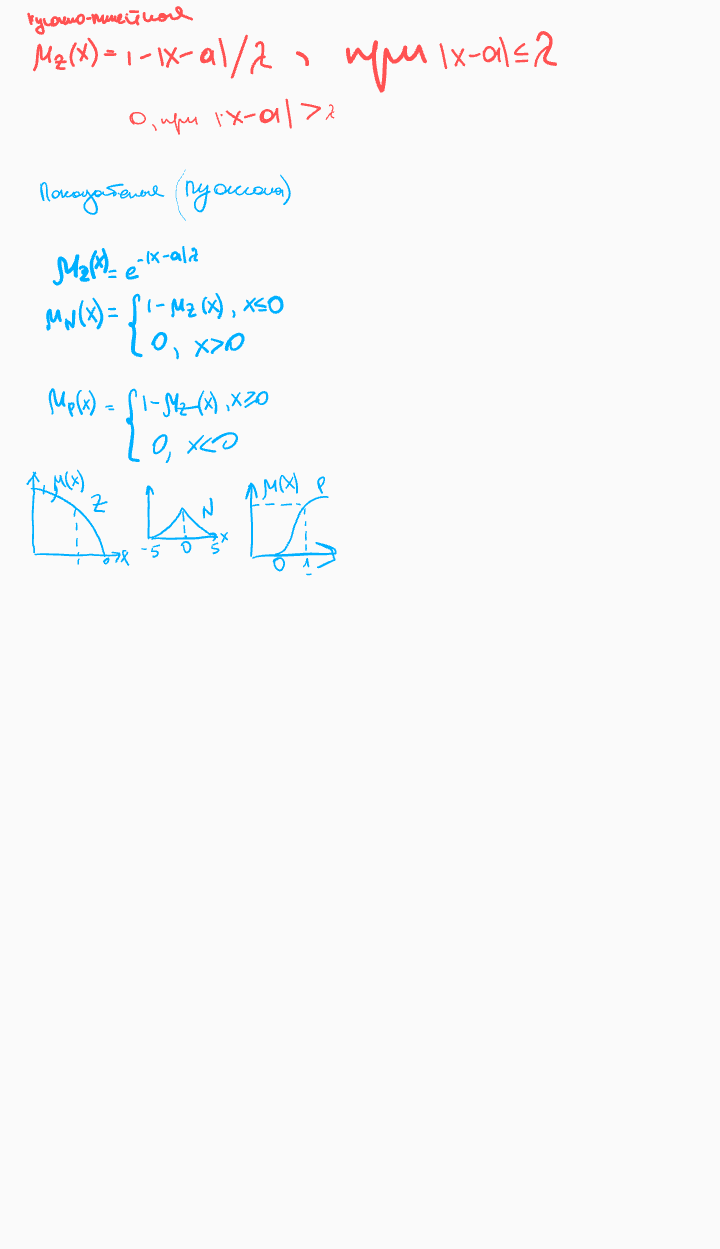 кусочно-линейная
μz(x) = 1-|x-a|/λ , при |x-a|≤λ
0, при |x-a|>λ
Показательная (Пуассона)
μz(x) = e^-|x-a|λ
μN(x) = { 1-μz(x), x≤0
0, x>0
μp(x) = { 1-μz(x), x≥0
0, x<0
μ(x) Z N μ(x) P
x -5 0 5 x 0 1